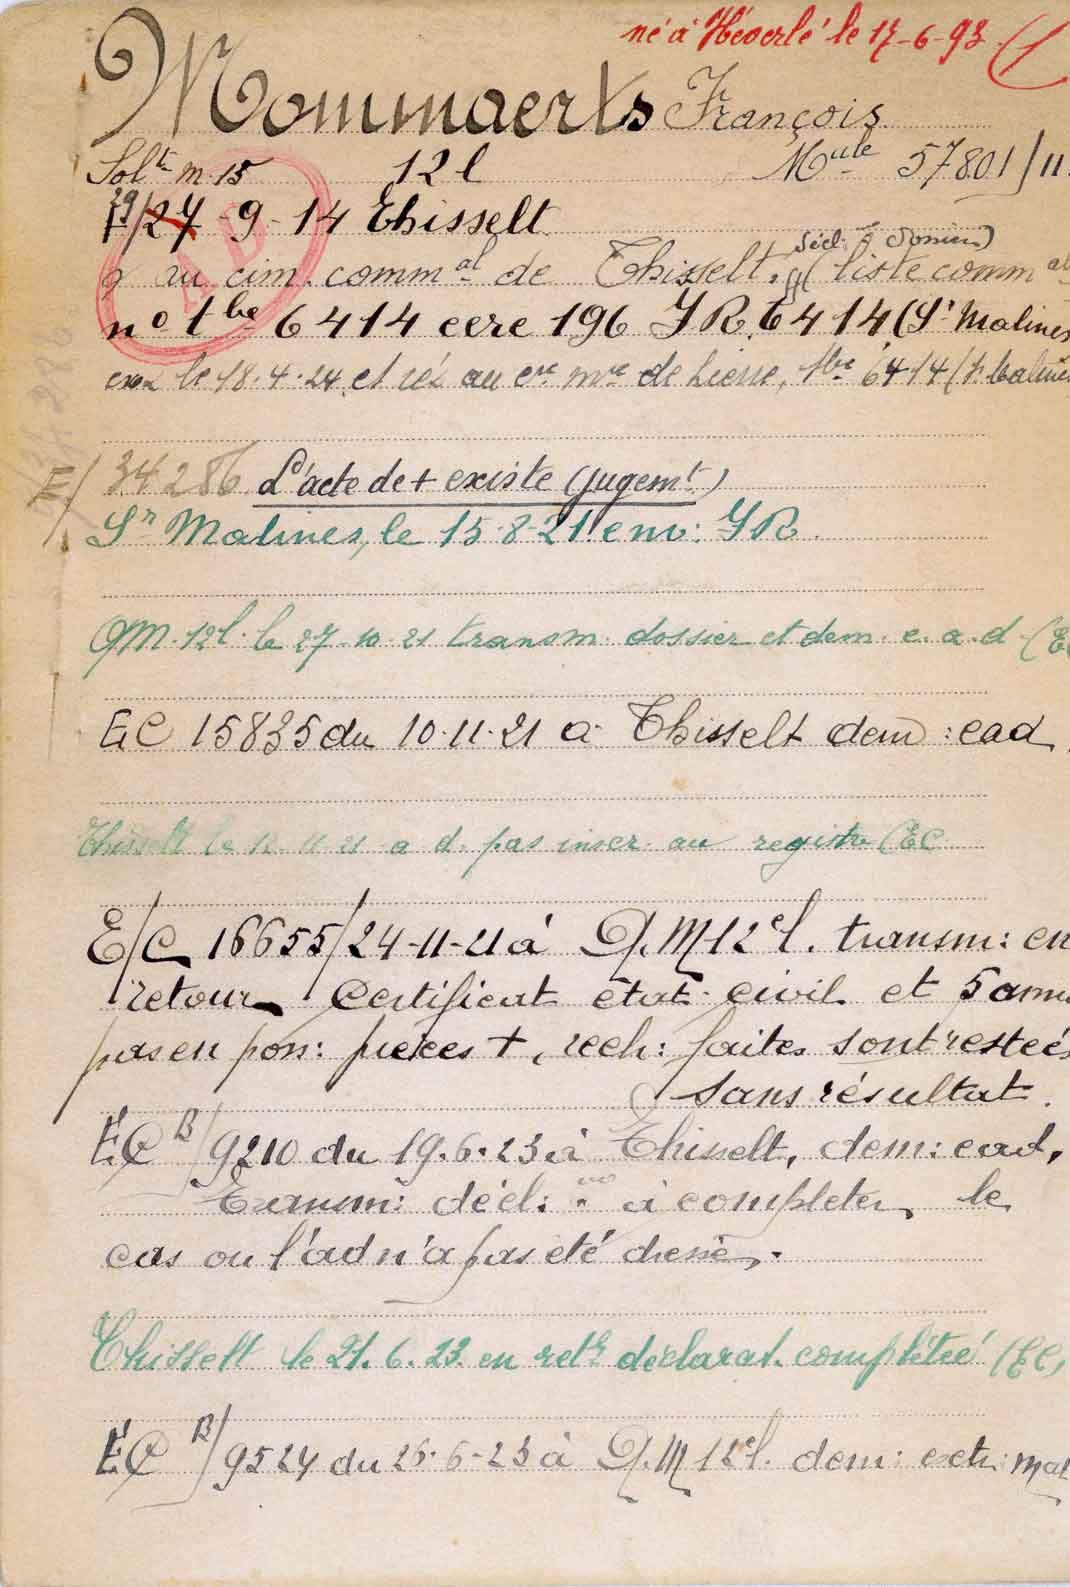 né à Héverlé le 17-6-93
Mommaerts François
Solt m. 15 12 l Mule 57801/11
29/27-9-14 Thisselt
au cim. commal de Thisselt. (liste commal
no tbe 6414 cere 196 JR. 6414 (Sr Malines
exh le 18.4.24 et ré au cre mre de Lierre, tbe 6414 (Sr Malines
E/ 34286 L'acte de + existe (jugemt)
Sr Malines, le 15-8-21 env: JR.
QM. 12 l. le 27-10-21 transm. dossier et dem. e.a.d. (EC
EC 15835 du 10-11-21 à Thisselt dem: ead.
Thisselt le 12-11-21 a d. pas inscr. au registre (EC
E/C 16655/24-11-21 à Q.M 12e l. transm: en
retour certificat état-civil et 5 ann
pas en poss: pièces +, rech: faites sont restées
sans résultat.
EC B/9210 du 19.6.23 à Thisselt, dem: ead,
Transm: décl: à completer, le
cas ou l'ad n'a pas été dressé.
Thisselt le 21.6.23. en retr declarat. complétée (EC,
EC B/9524 du 26-6-23 à Q.M 12e l. dem: extr: mat